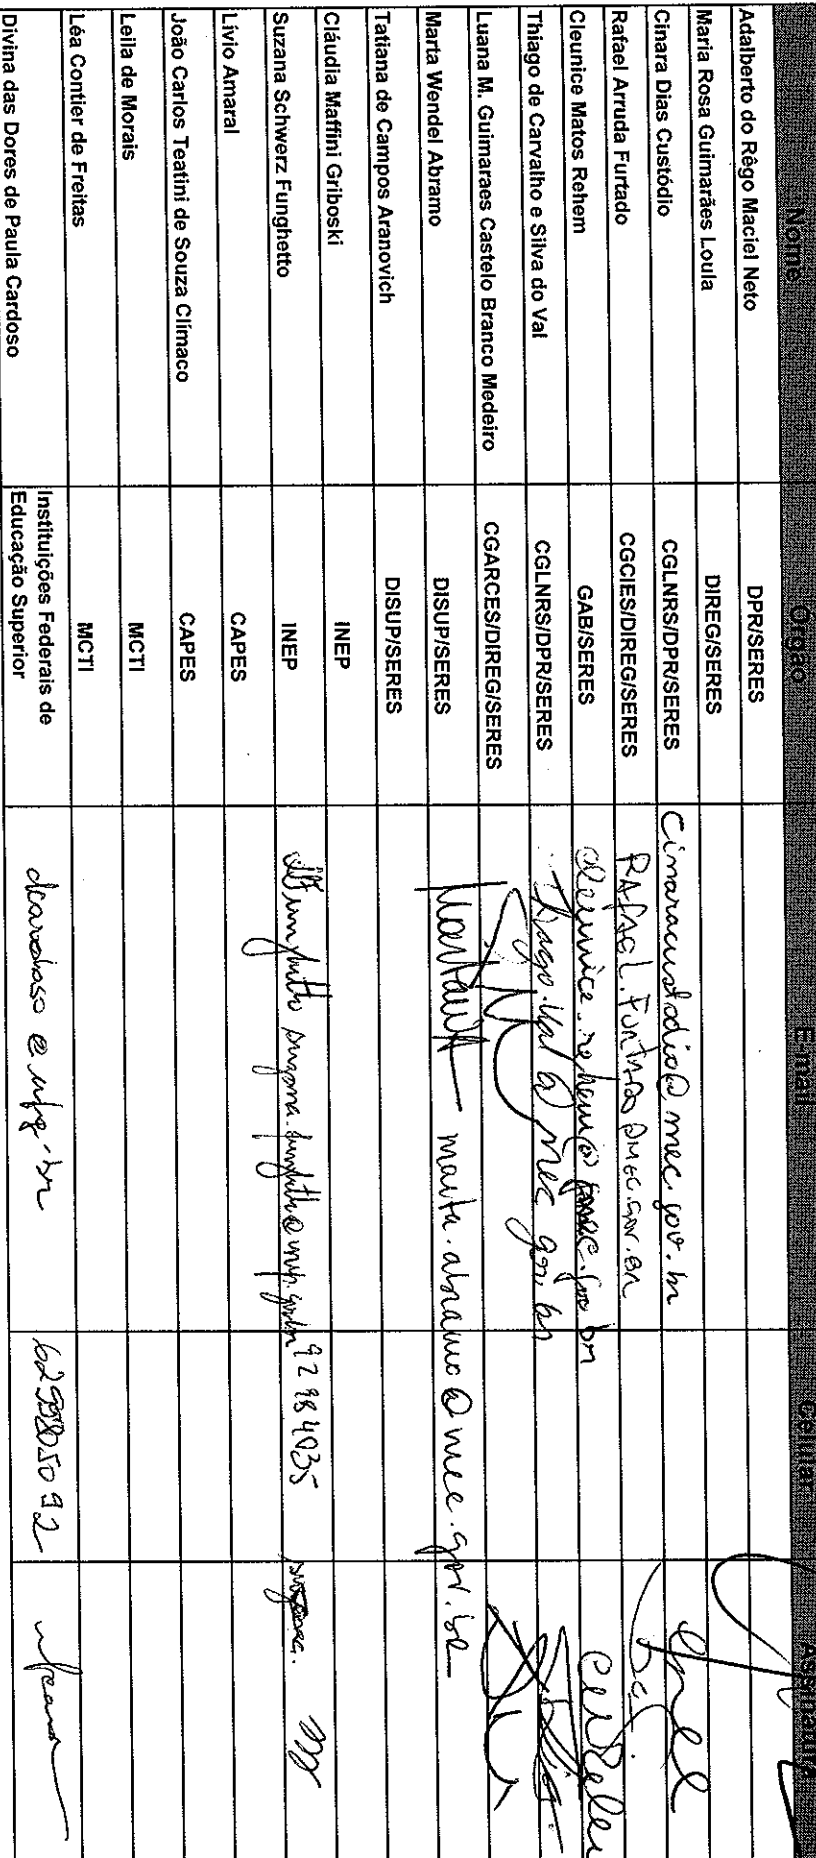 Nome Órgão E-mail Celular Assinatura
Adalberto do Rêgo Maciel Neto DPR/SERES
Maria Rosa Guimarães Loula DIREG/SERES
Cinara Dias Custódio CGLNRS/DPR/SERES Cinaracustodio@mec.gov.br
Rafael Arruda Furtado CGCIES/DIREG/SERES RAFAEL.FURTADO@MEC.GOV.BR
Cleunice Matos Rehem GAB/SERES cleunice.rehem@mec.gov.br
Thiago de Carvalho e Silva do Val CGLNRS/DPR/SERES Thiago.Val@mec.gov.br
Luana M. Guimaraes Castelo Branco Medeiro CGARCES/DIREG/SERES
Marta Wendel Abramo DISUP/SERES marta.abramo@mec.gov.br
Tatiana de Campos Aranovich DISUP/SERES
Cláudia Maffini Griboski INEP
Suzana Schwerz Funghetto INEP suzana.funghetto@inep.gov.br 92984035
Lívio Amaral CAPES
João Carlos Teatini de Souza Clímaco CAPES
Leila de Morais MCTI
Léa Contier de Freitas MCTI
Divina das Dores de Paula Cardoso Instituições Federais de
Educação Superior dcardoso@ufg.br